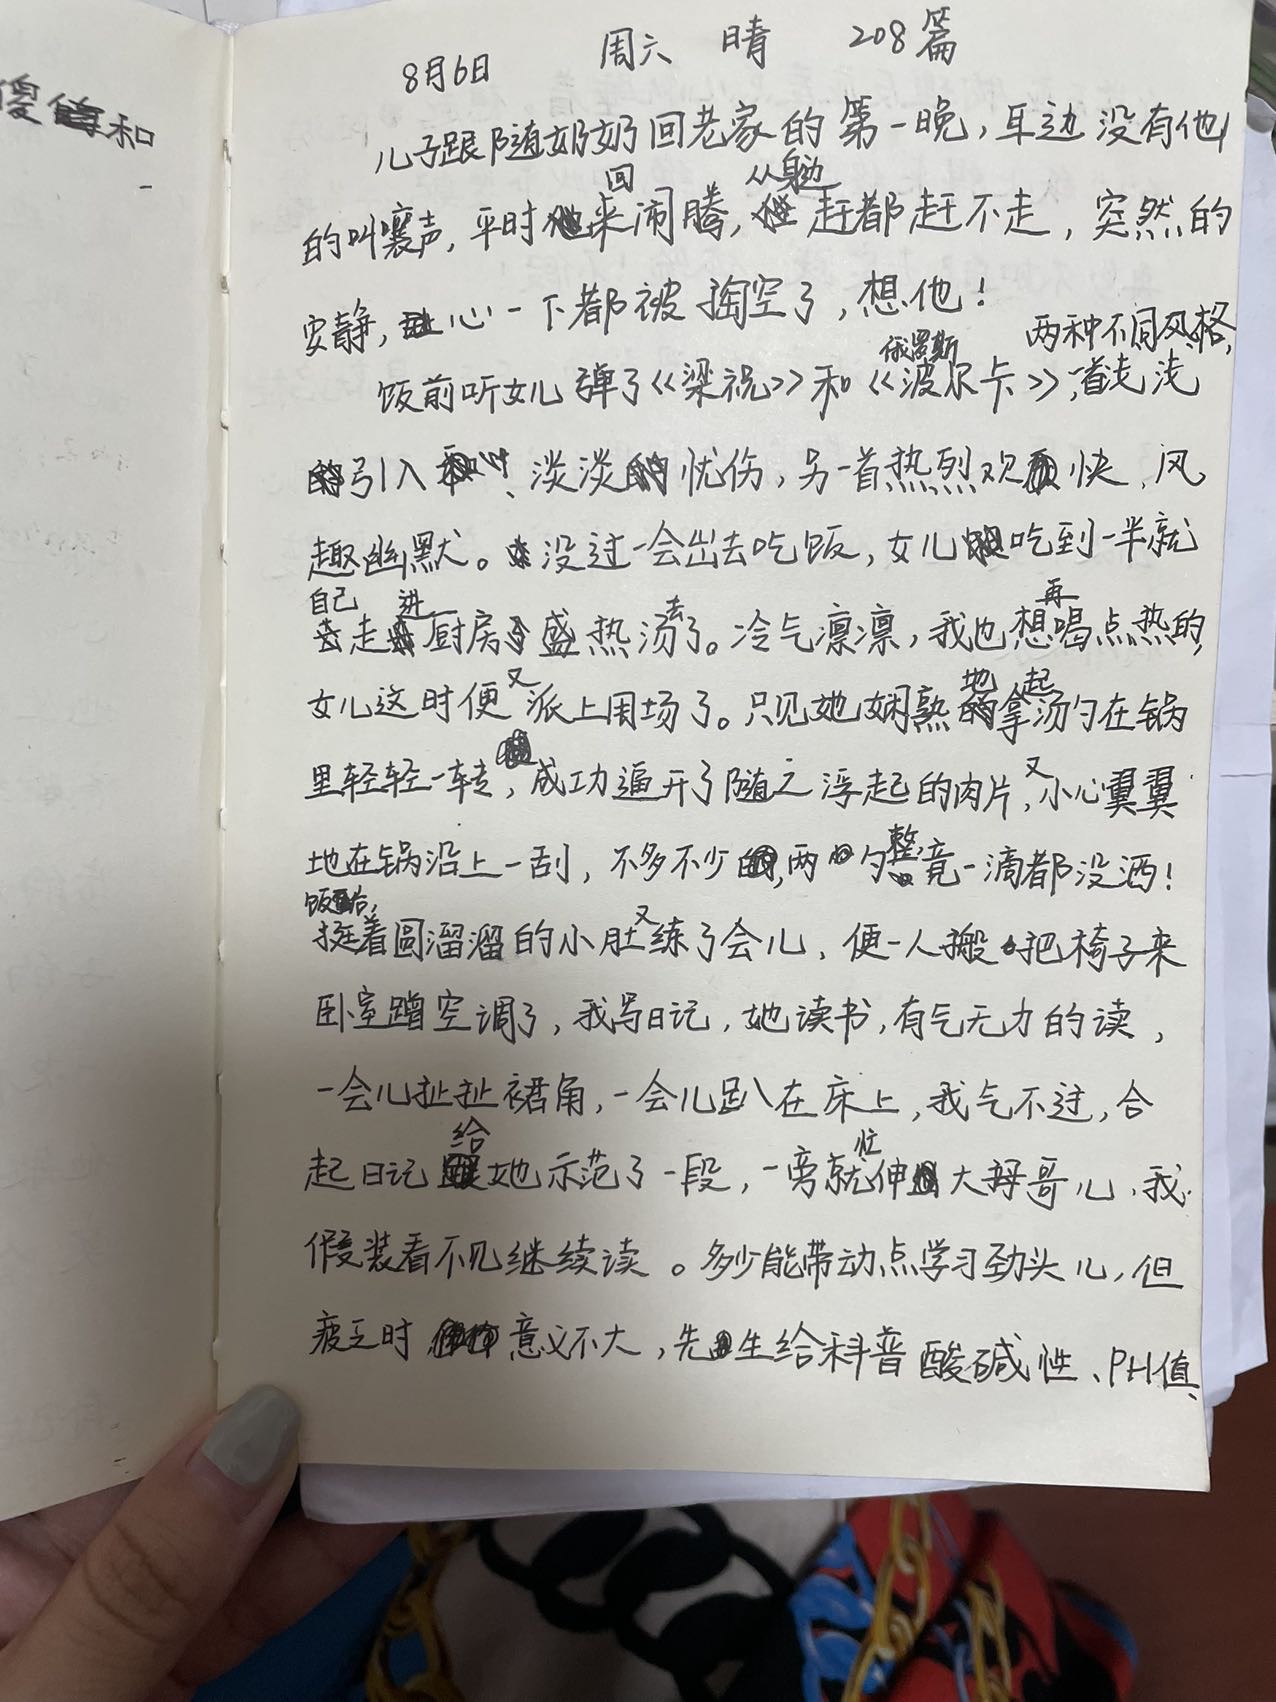 傻 和
8月6日 周六 晴 208篇
儿子跟随奶奶回老家的第一晚，耳边没有他
的叫嚷声，平时回来闹腾，从身边赶都赶不走，突然的
安静，心一下都被掏空了，想他！
饭前听女儿弹了《梁祝》和《俄罗斯波尔卡》，两种不同风格，一首浅浅
引入、淡淡忧伤，另一首热烈欢快、风
趣幽默。没过一会出去吃饭，女儿吃到一半就
自己走进厨房盛热汤去了。冷气凛凛，我也想再喝点热的，
女儿这时便又派上用场了。只见她娴熟地拿起汤勺在锅
里轻轻一转，成功逼开了随之浮起的肉片，又小心翼翼
地在锅沿上一刮，不多不少，两勺整，竟一滴都没洒！
饭后，挺着圆溜溜的小肚又练了会儿，便一人搬把椅子来
卧室蹭空调了，我写日记，她读书，有气无力的读，
一会儿扯扯裙角，一会儿趴在床上，我气不过，合
起日记给她示范了一段，一旁就忙伸大拇哥儿，我
假装看不见继续读。多少能带动点学习劲头儿，但
疲乏时意义不大，先生给科普酸碱性、PH值、